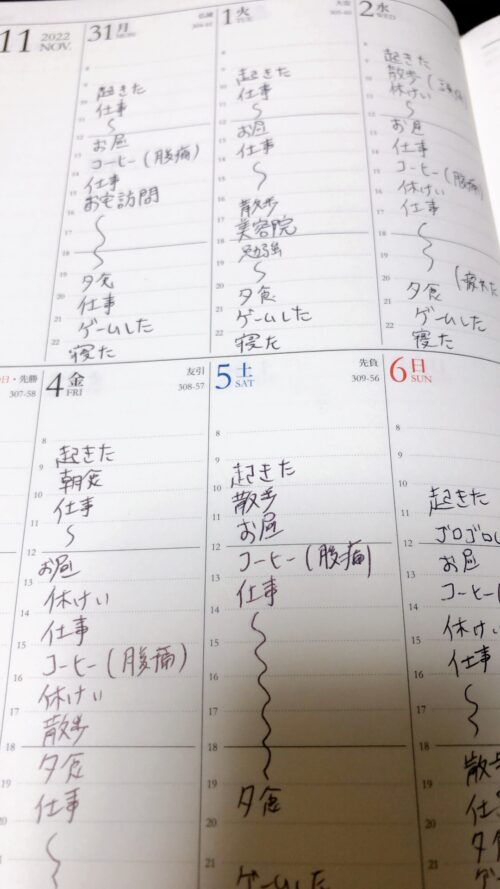 11 2022 NOV.
31 月 MON 仏滅
8
9
10
11
12
13
14
15
16
17
18
19
20
21
22
起きた
仕事
〜
お昼
コーヒー(腹痛)
仕事
お宅訪問
〜
〜
夕食
仕事
ゲームした
寝た
1 火 TUE 大安 305-60
起きた
仕事
〜
お昼
仕事
〜
散歩
美容院
勉強
〜
夕食
ゲームした
寝た
2 水 WED
起きた
散歩(
休けい
〜
お昼
仕事
コーヒー(腹痛)
休けい
仕事
〜
〜
夕食(疲れた
ゲームした
寝た
日・先勝
307-58
4 金 FRI 友引 308-57
8
9
10
11
12
13
14
15
16
17
18
19
20
21
起きた
朝食
仕事
〜
お昼
休けい
仕事
コーヒー(腹痛)
休けい
散歩
夕食
仕事
〜
5 土 SAT 先負 309-56
8
9
10
11
12
13
14
15
16
17
18
19
20
21
起きた
散歩
お昼
コーヒー(腹痛)
仕事
〜
夕食
ゲームした
6 日 SUN
8
9
10
11
12
13
14
15
16
17
18
19
20
21
起きた
ゴロゴロ
お昼
コーヒー(
休けい
仕事
〜
散歩
仕事
夕食